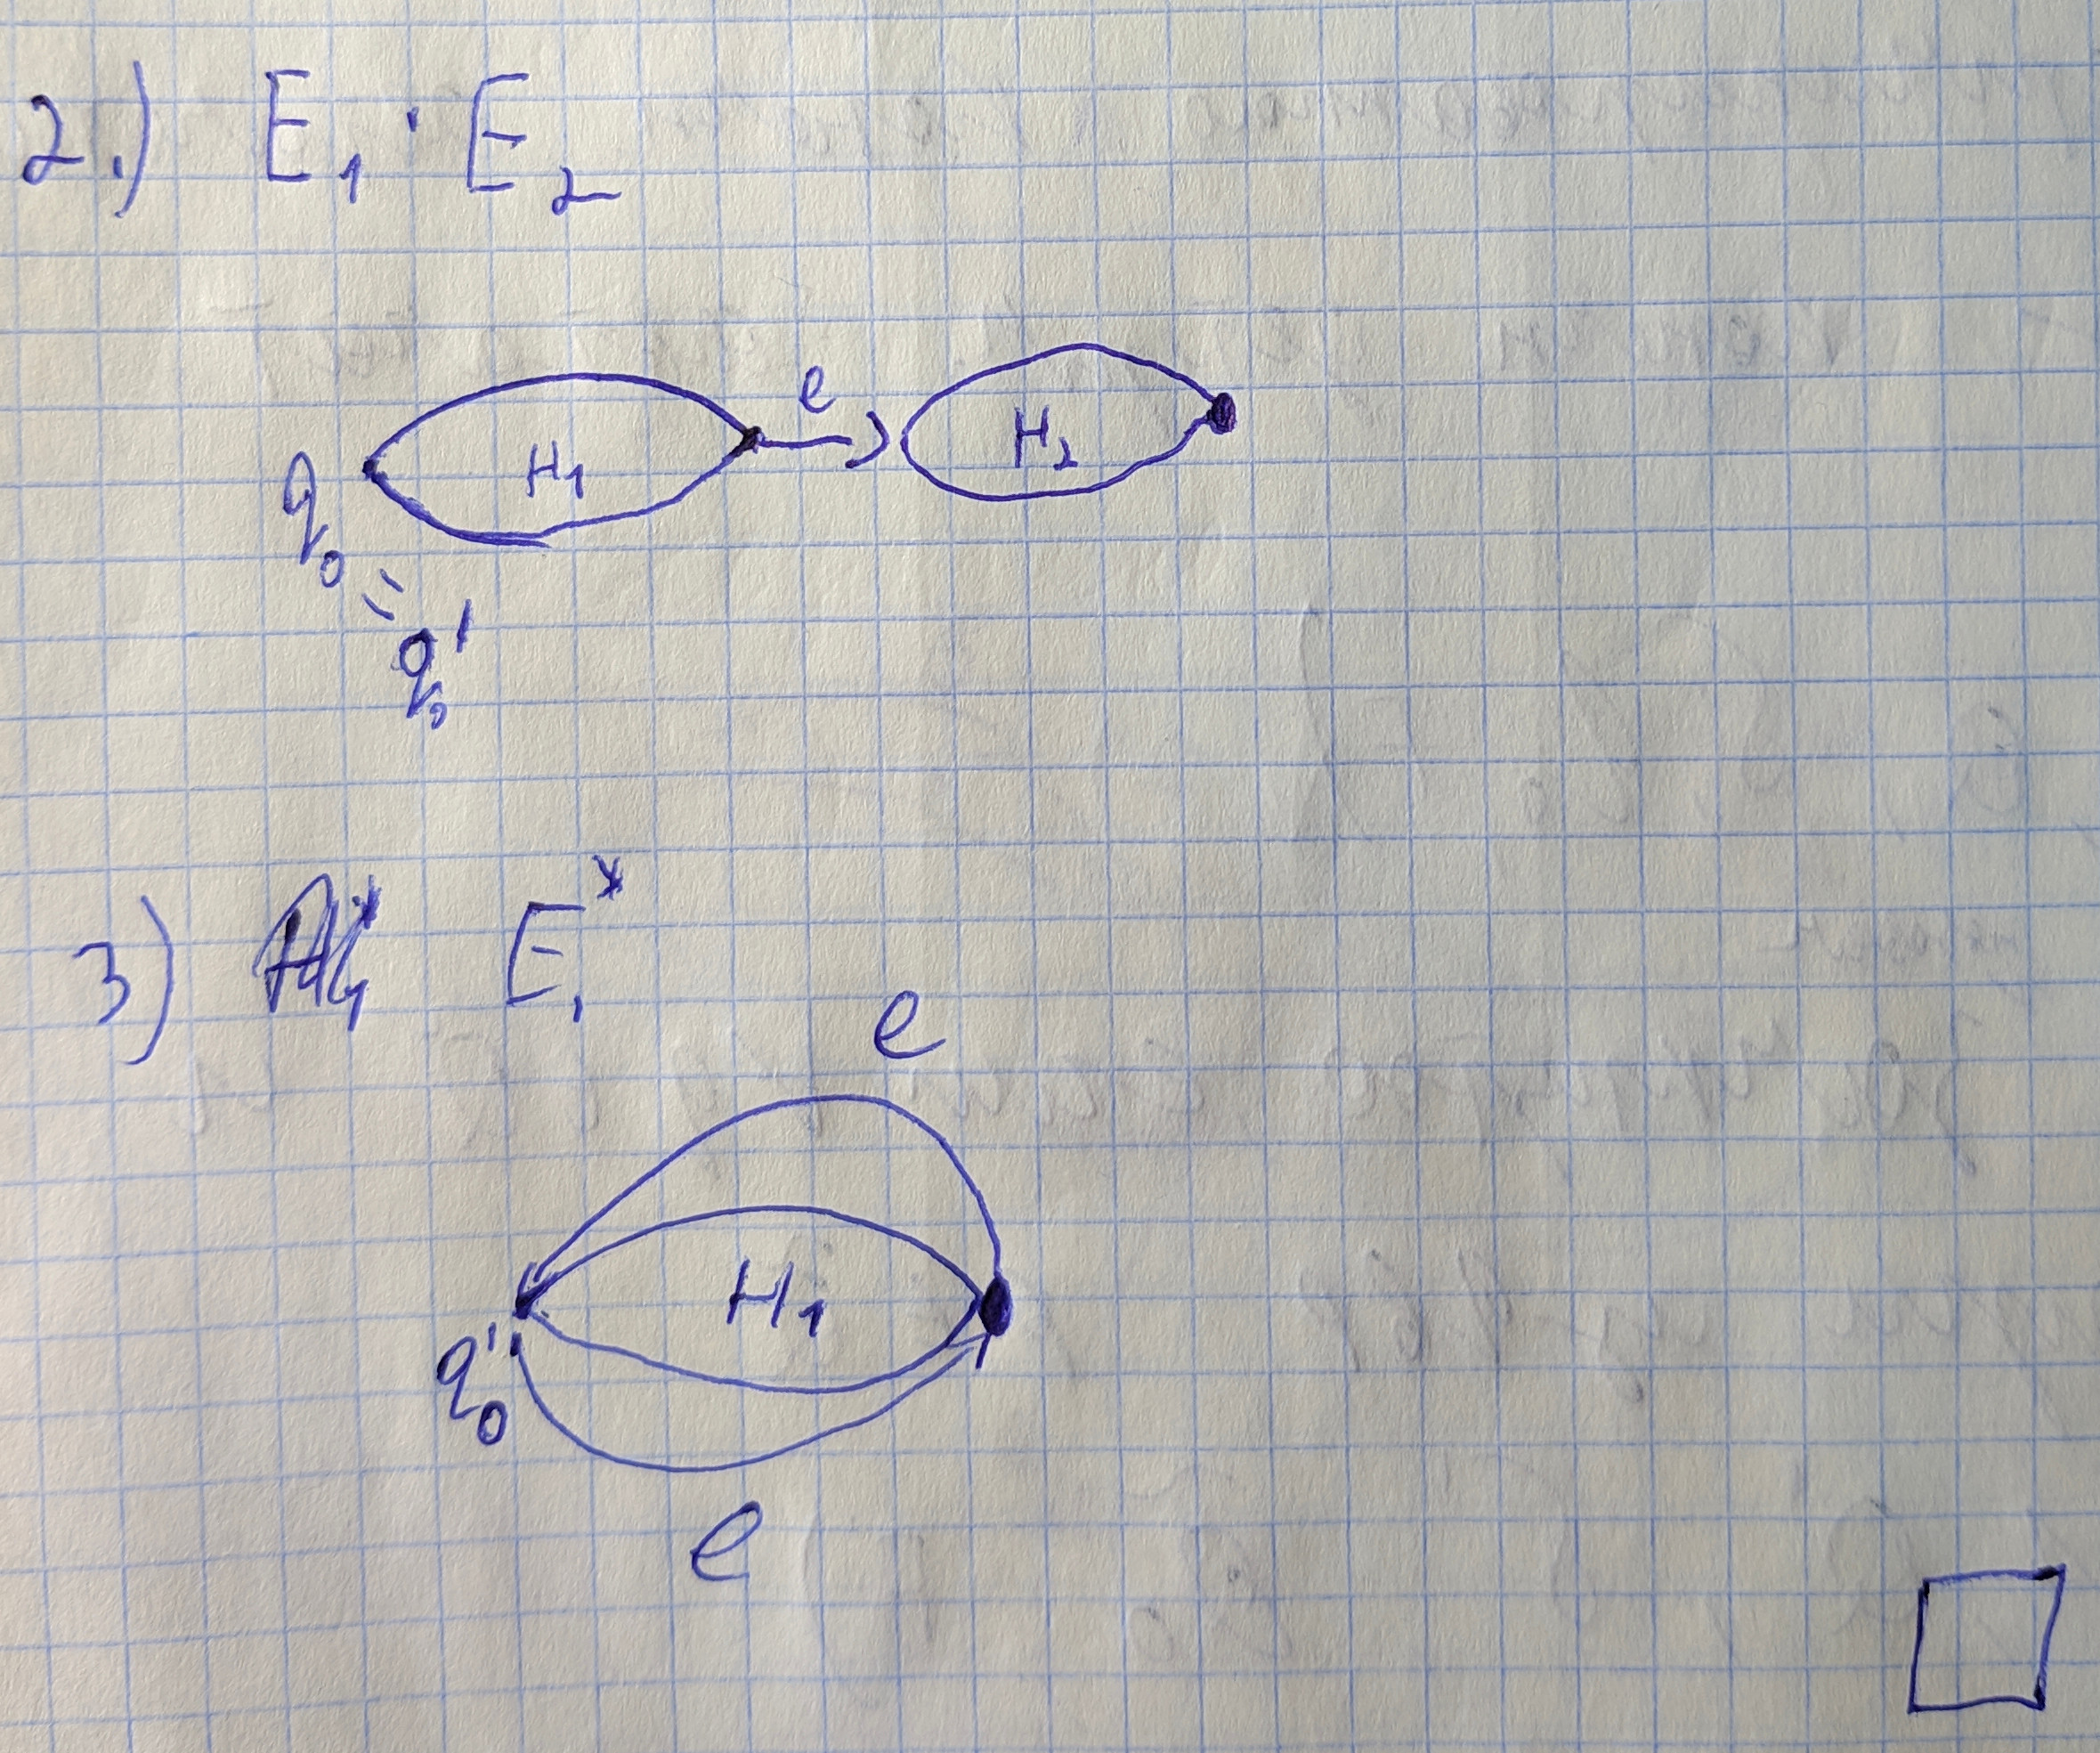 2.) E₁ · E₂
e
H₁ H₂
q₀
= q₀'
3) E₁*
e
H₁
q₀'
e